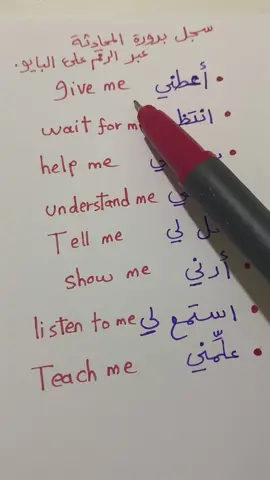 سجل بدورة المحادثة
عبر الرقم على البايو.
give me أعطني
wait for me
help me
understand me
Tell me لي
show me أرني
listen to me استمع لي
Teach me علّمني